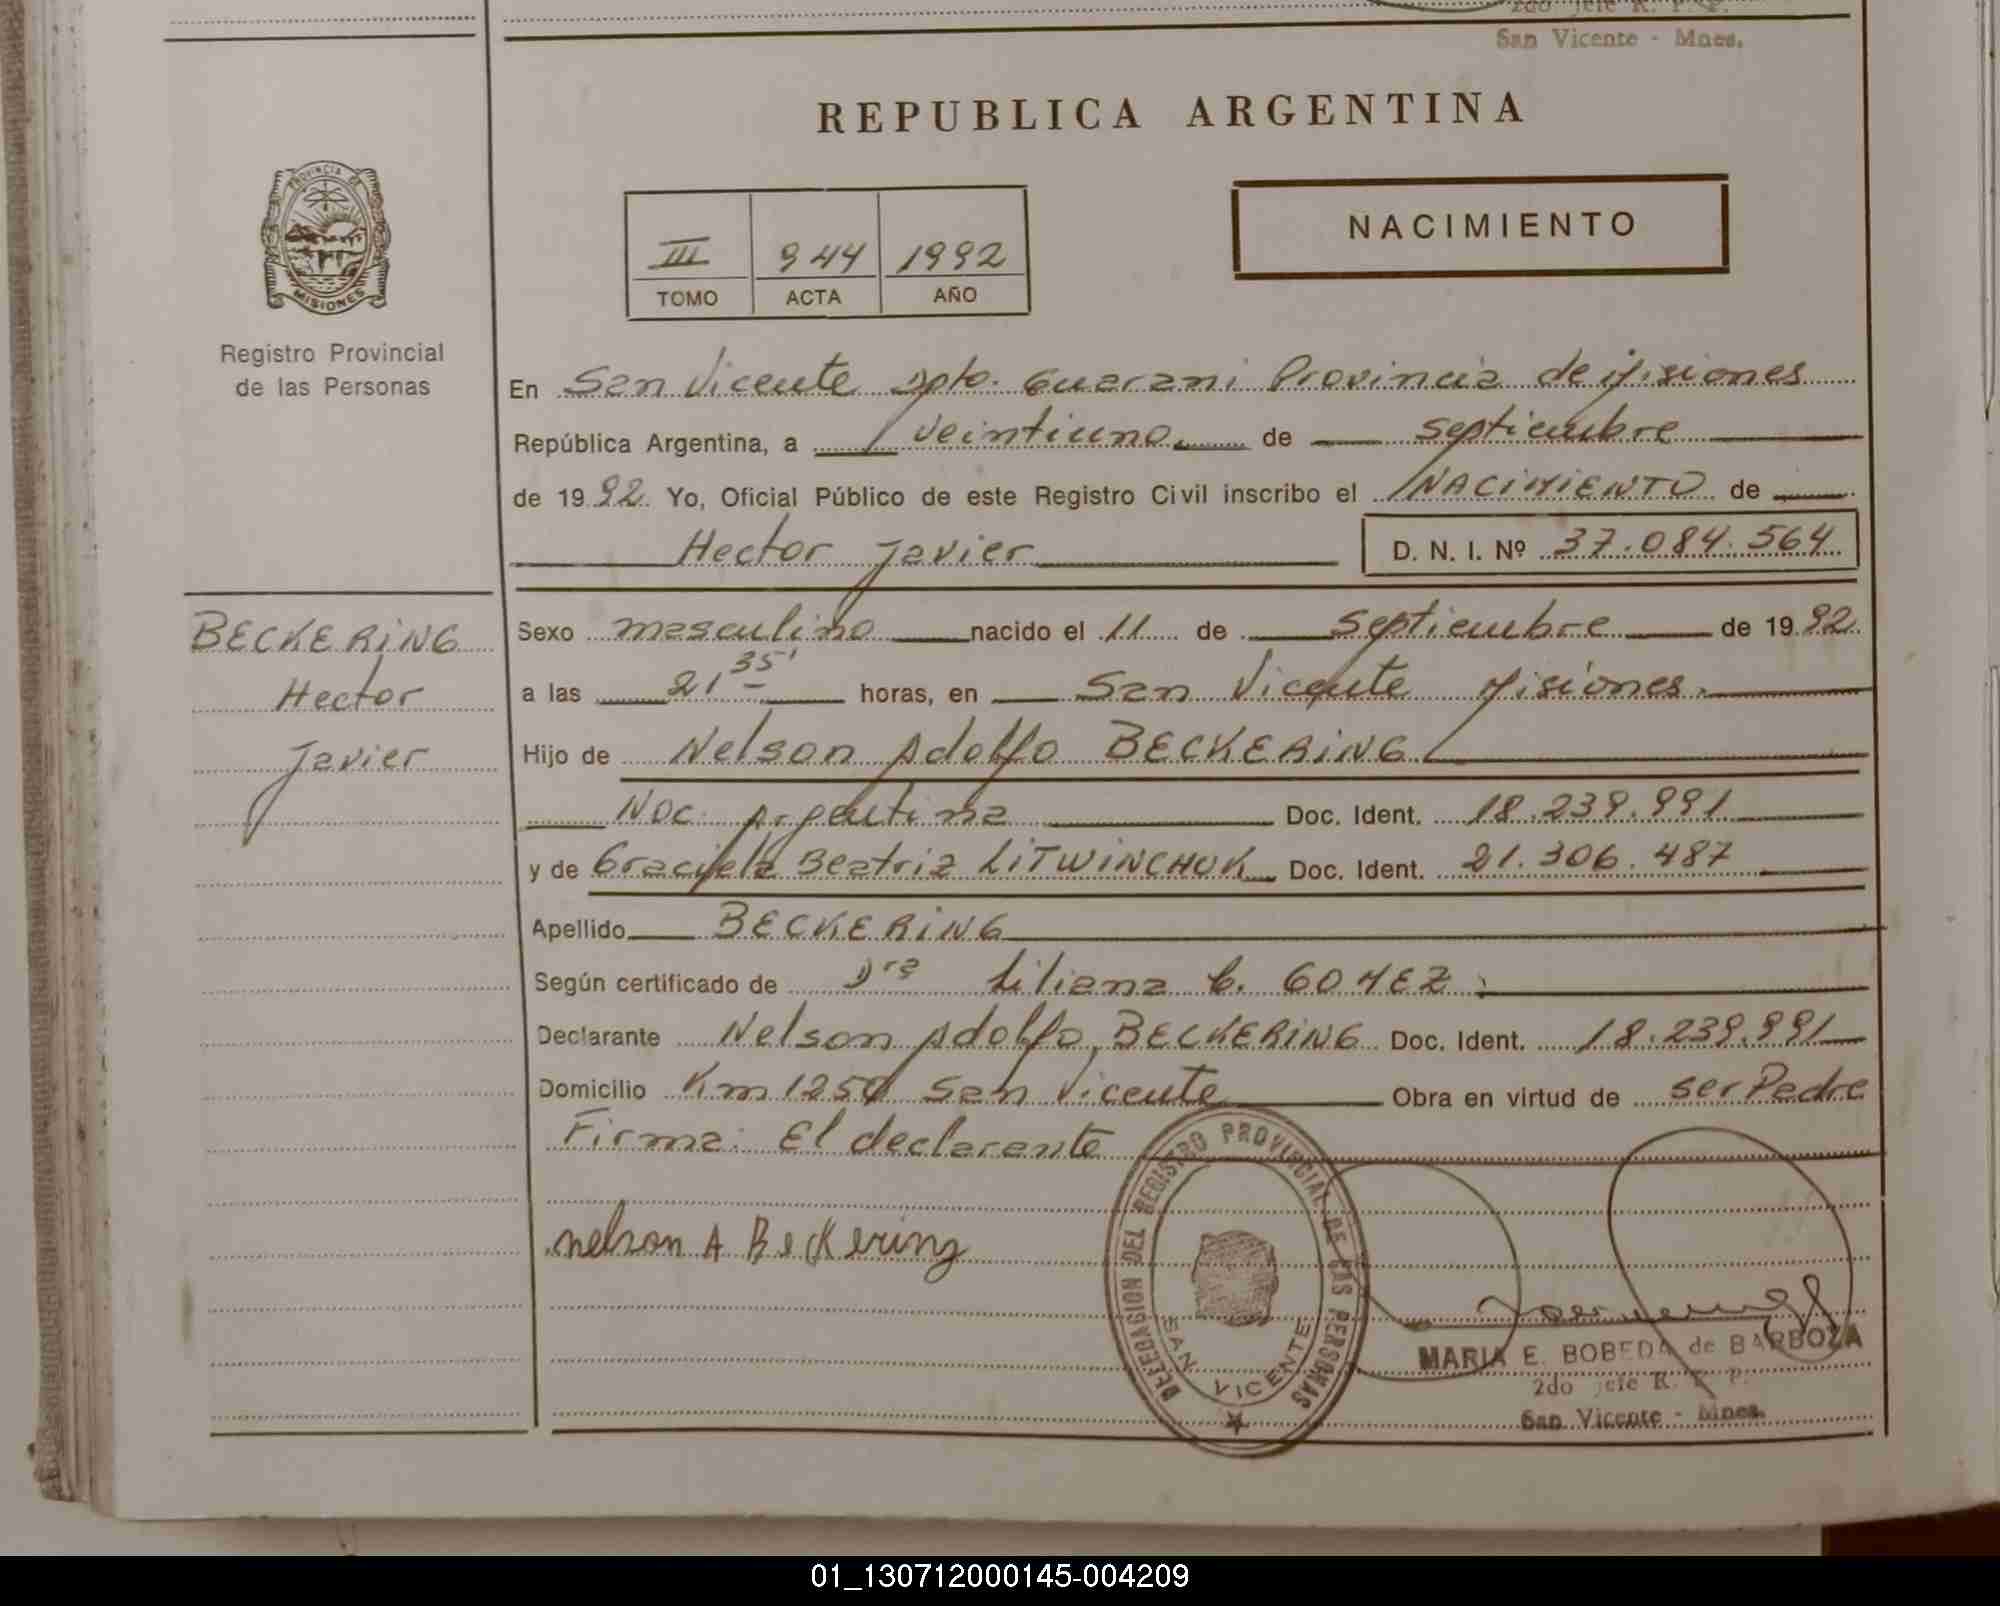 2do Jefe R. P. P.
San Vicente - Mnes.
REPUBLICA ARGENTINA
PROVINCIA DE
MISIONES
NACIMIENTO
III 944 1992
TOMO ACTA AÑO
Registro Provincial
de las Personas
En San Vicente Dpto. Guarani Provincia de Misiones
República Argentina, a veintiuno de septiembre
de 1992. Yo, Oficial Público de este Registro Civil inscribo el NACIMIENTO de
Hector Javier D. N. I. Nº 37.084.564
BECKERING
Hector
Javier
Sexo masculino nacido el 11 de septiembre de 1992
a las 21 35' horas, en San Vicente Misiones.
Hijo de Nelson Adolfo BECKERING
Nac. Argentina Doc. Ident. 18.239.991
y de Graciela Beatriz LITWINCHUK Doc. Ident. 21.306.487
Apellido BECKERING
Según certificado de Dra Liliana C. GOMEZ
Declarante Nelson Adolfo BECKERING Doc. Ident. 18.239.991
Domicilio Km 1250 San Vicente Obra en virtud de ser Padre
Firma: El declarante
nelson A Beckering
DELEGACION DEL REGISTRO PROVINCIAL DE LAS PERSONAS
SAN VICENTE
MARIA E. BOBEDA de BARBOZA
2do Jefe R. P. P.
San Vicente - Mnes.
01_130712000145-004209